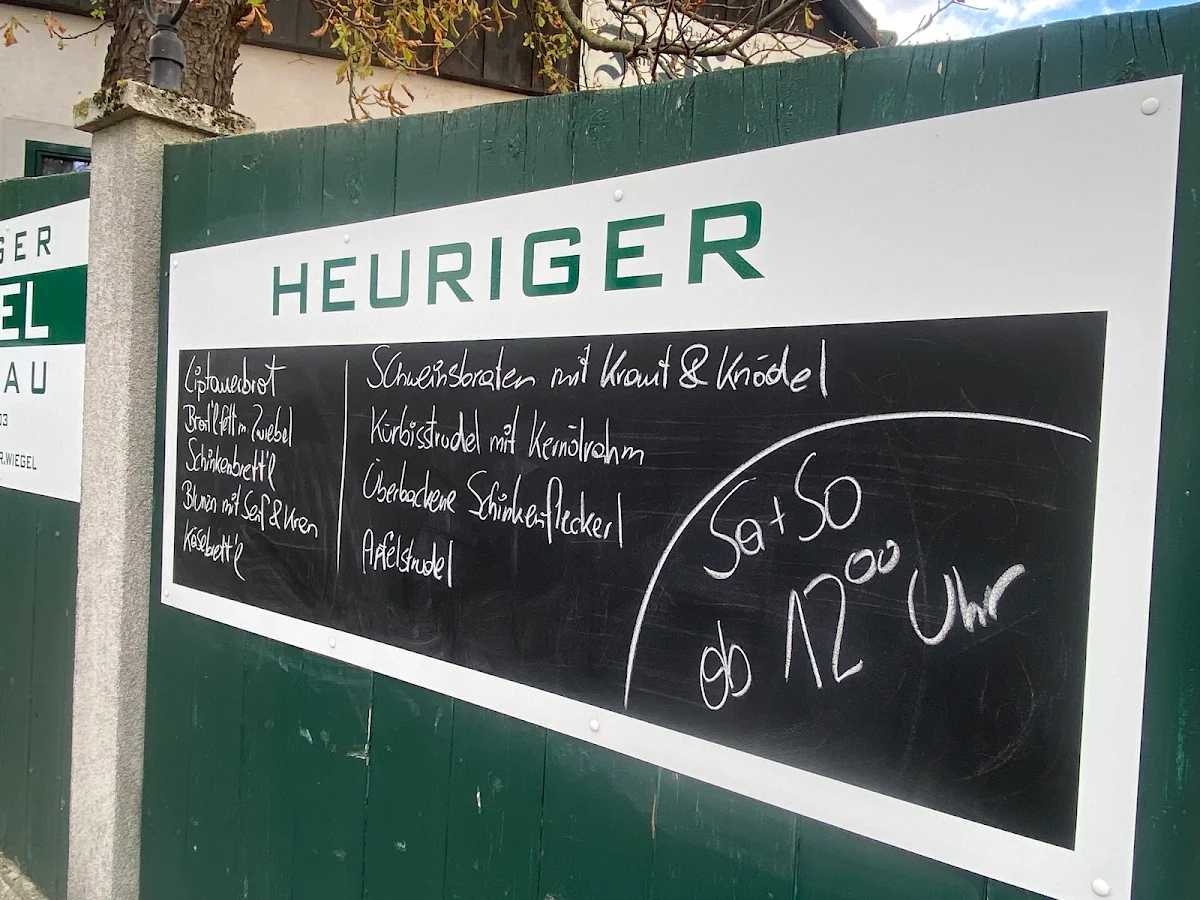 GER
EL
AU
03
R.WIEGEL
HEURIGER
Liptauerbrot
Bratlfett m. Zwiebel
Schinkenbrett'l
Blunzn mit Senf & Kren
Käsebrett'l
Schweinsbraten mit Kraut & Knödel
Kürbisstrudel mit Kernölrahm
Überbackene Schinkenfleckerl
Apfelstrudel
Sa+So
ab 12⁰⁰ Uhr